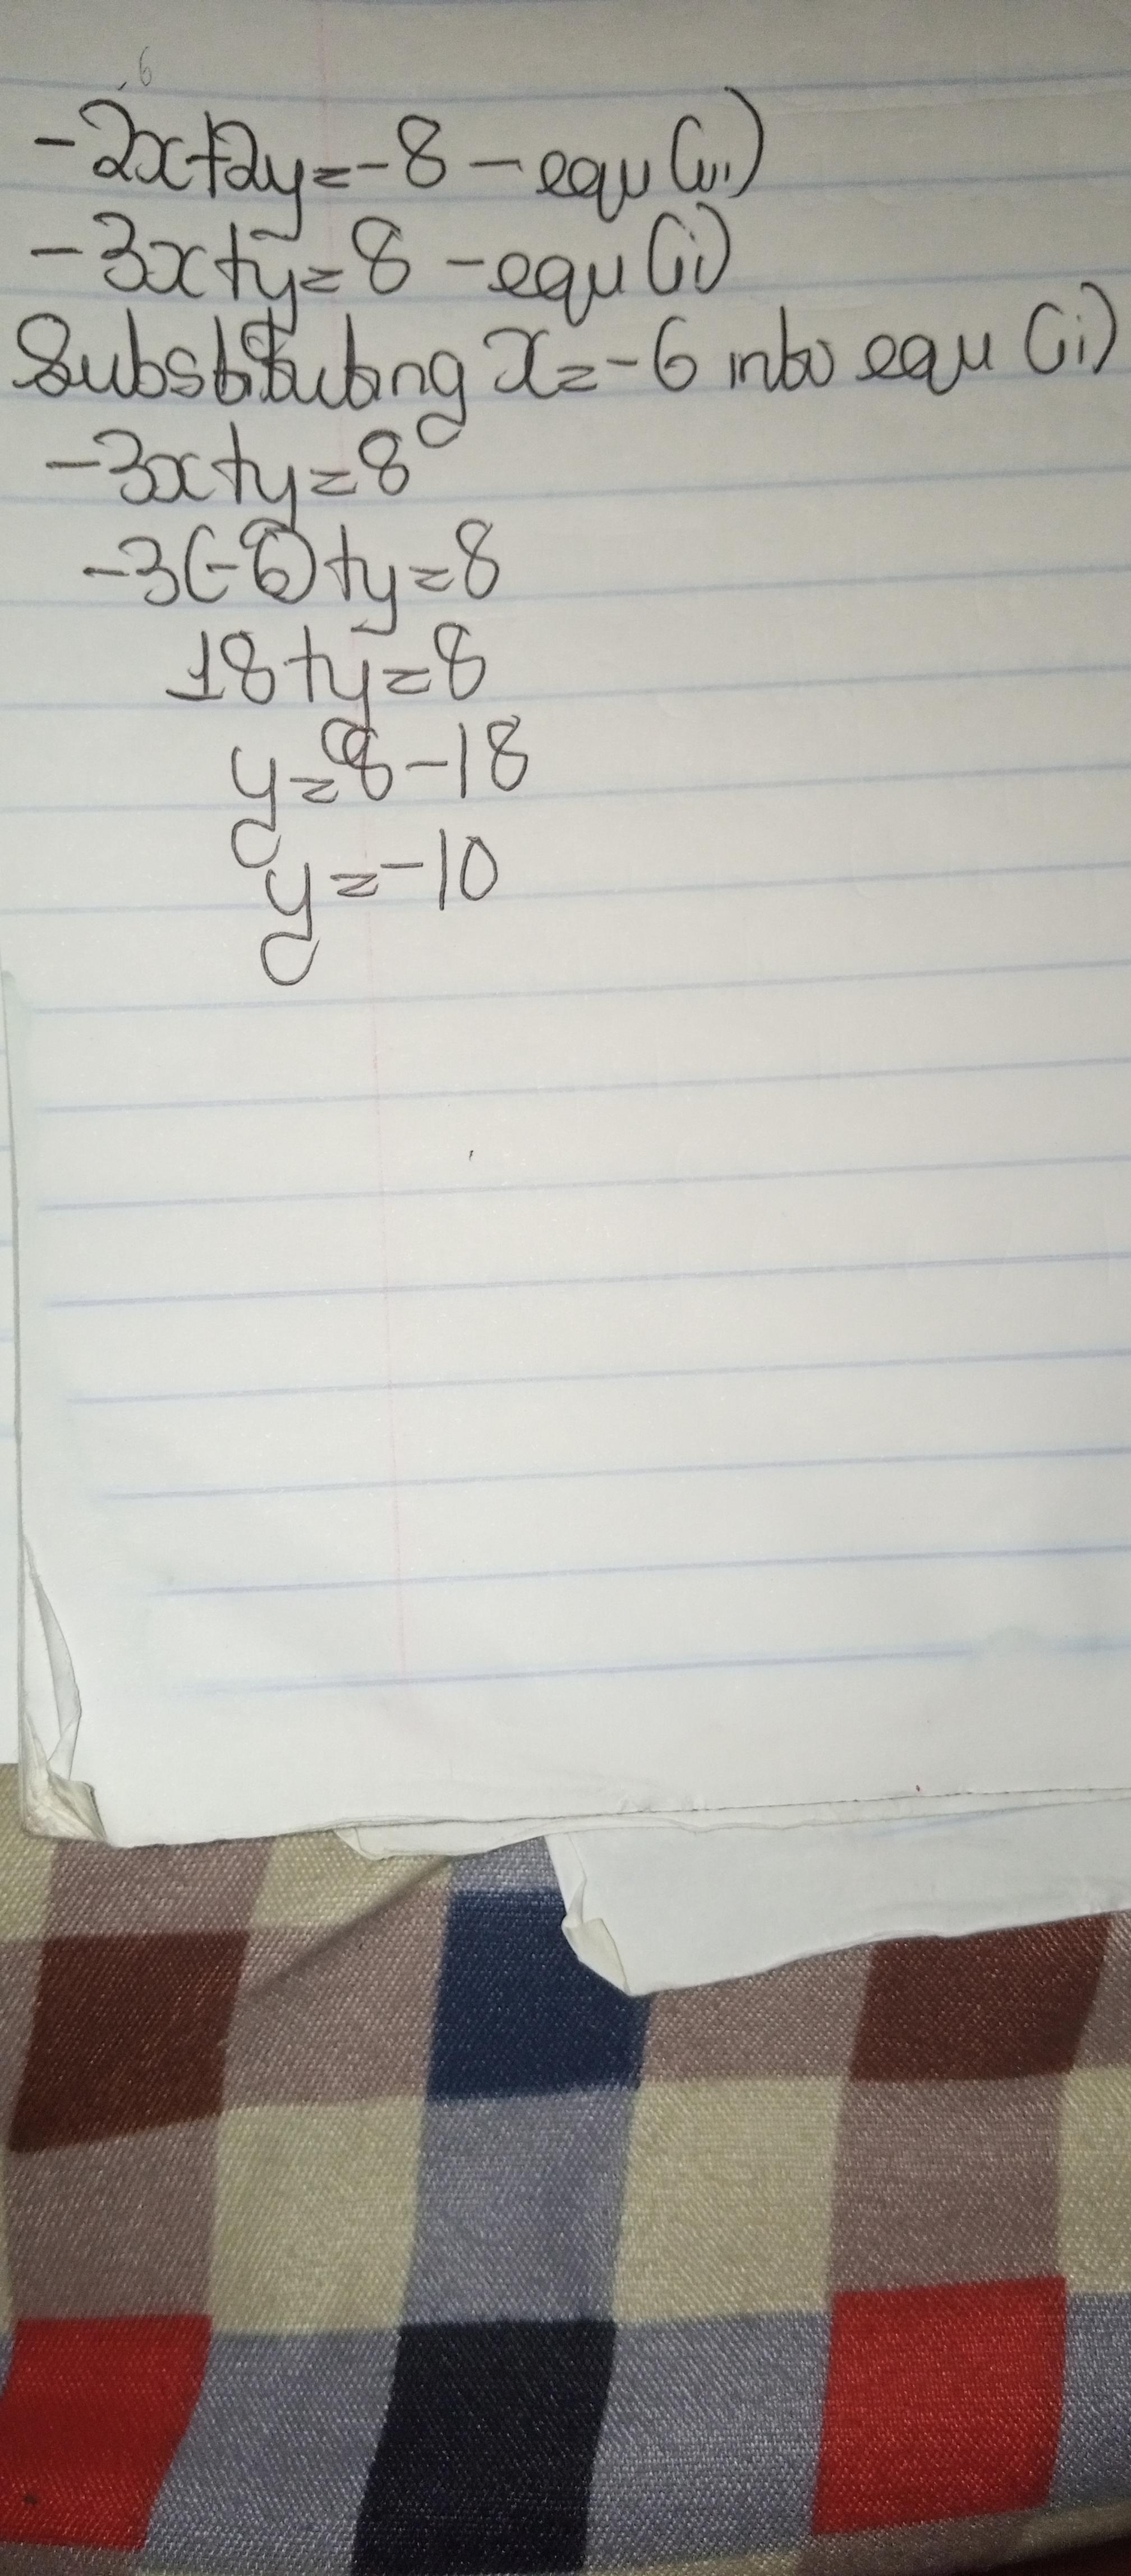 -6
-2x+2y=-8 - equ (iii)
-3x+y=8 - equ (ii)
Substituting x=-6 into equ (ii)
-3x+y=8
-3(-6)+y=8
18+y=8
y=8-18
y=-10